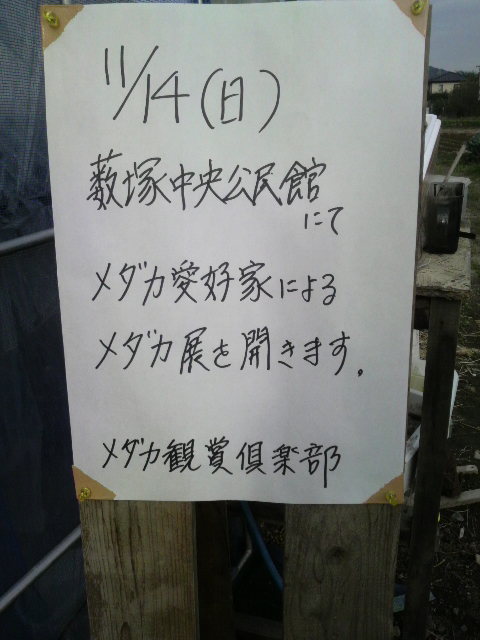 11/14(日)
藪塚中央公民館
にて
メダカ愛好家による
メダカ展を開きます.
メダカ観賞倶楽部